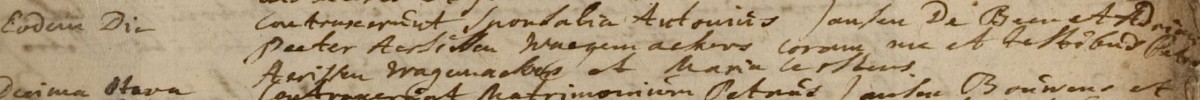 Eodem Die contraxerunt Sponsalia Antonius Jansen De Been et Adri
Peeter Aerssen Waegemackers coram me et testibus Peeter
Aerissen wagemackers et Maria Corstens
Decima Octava Contraxerunt Matrimonium Petrus Jansen Bouwens et